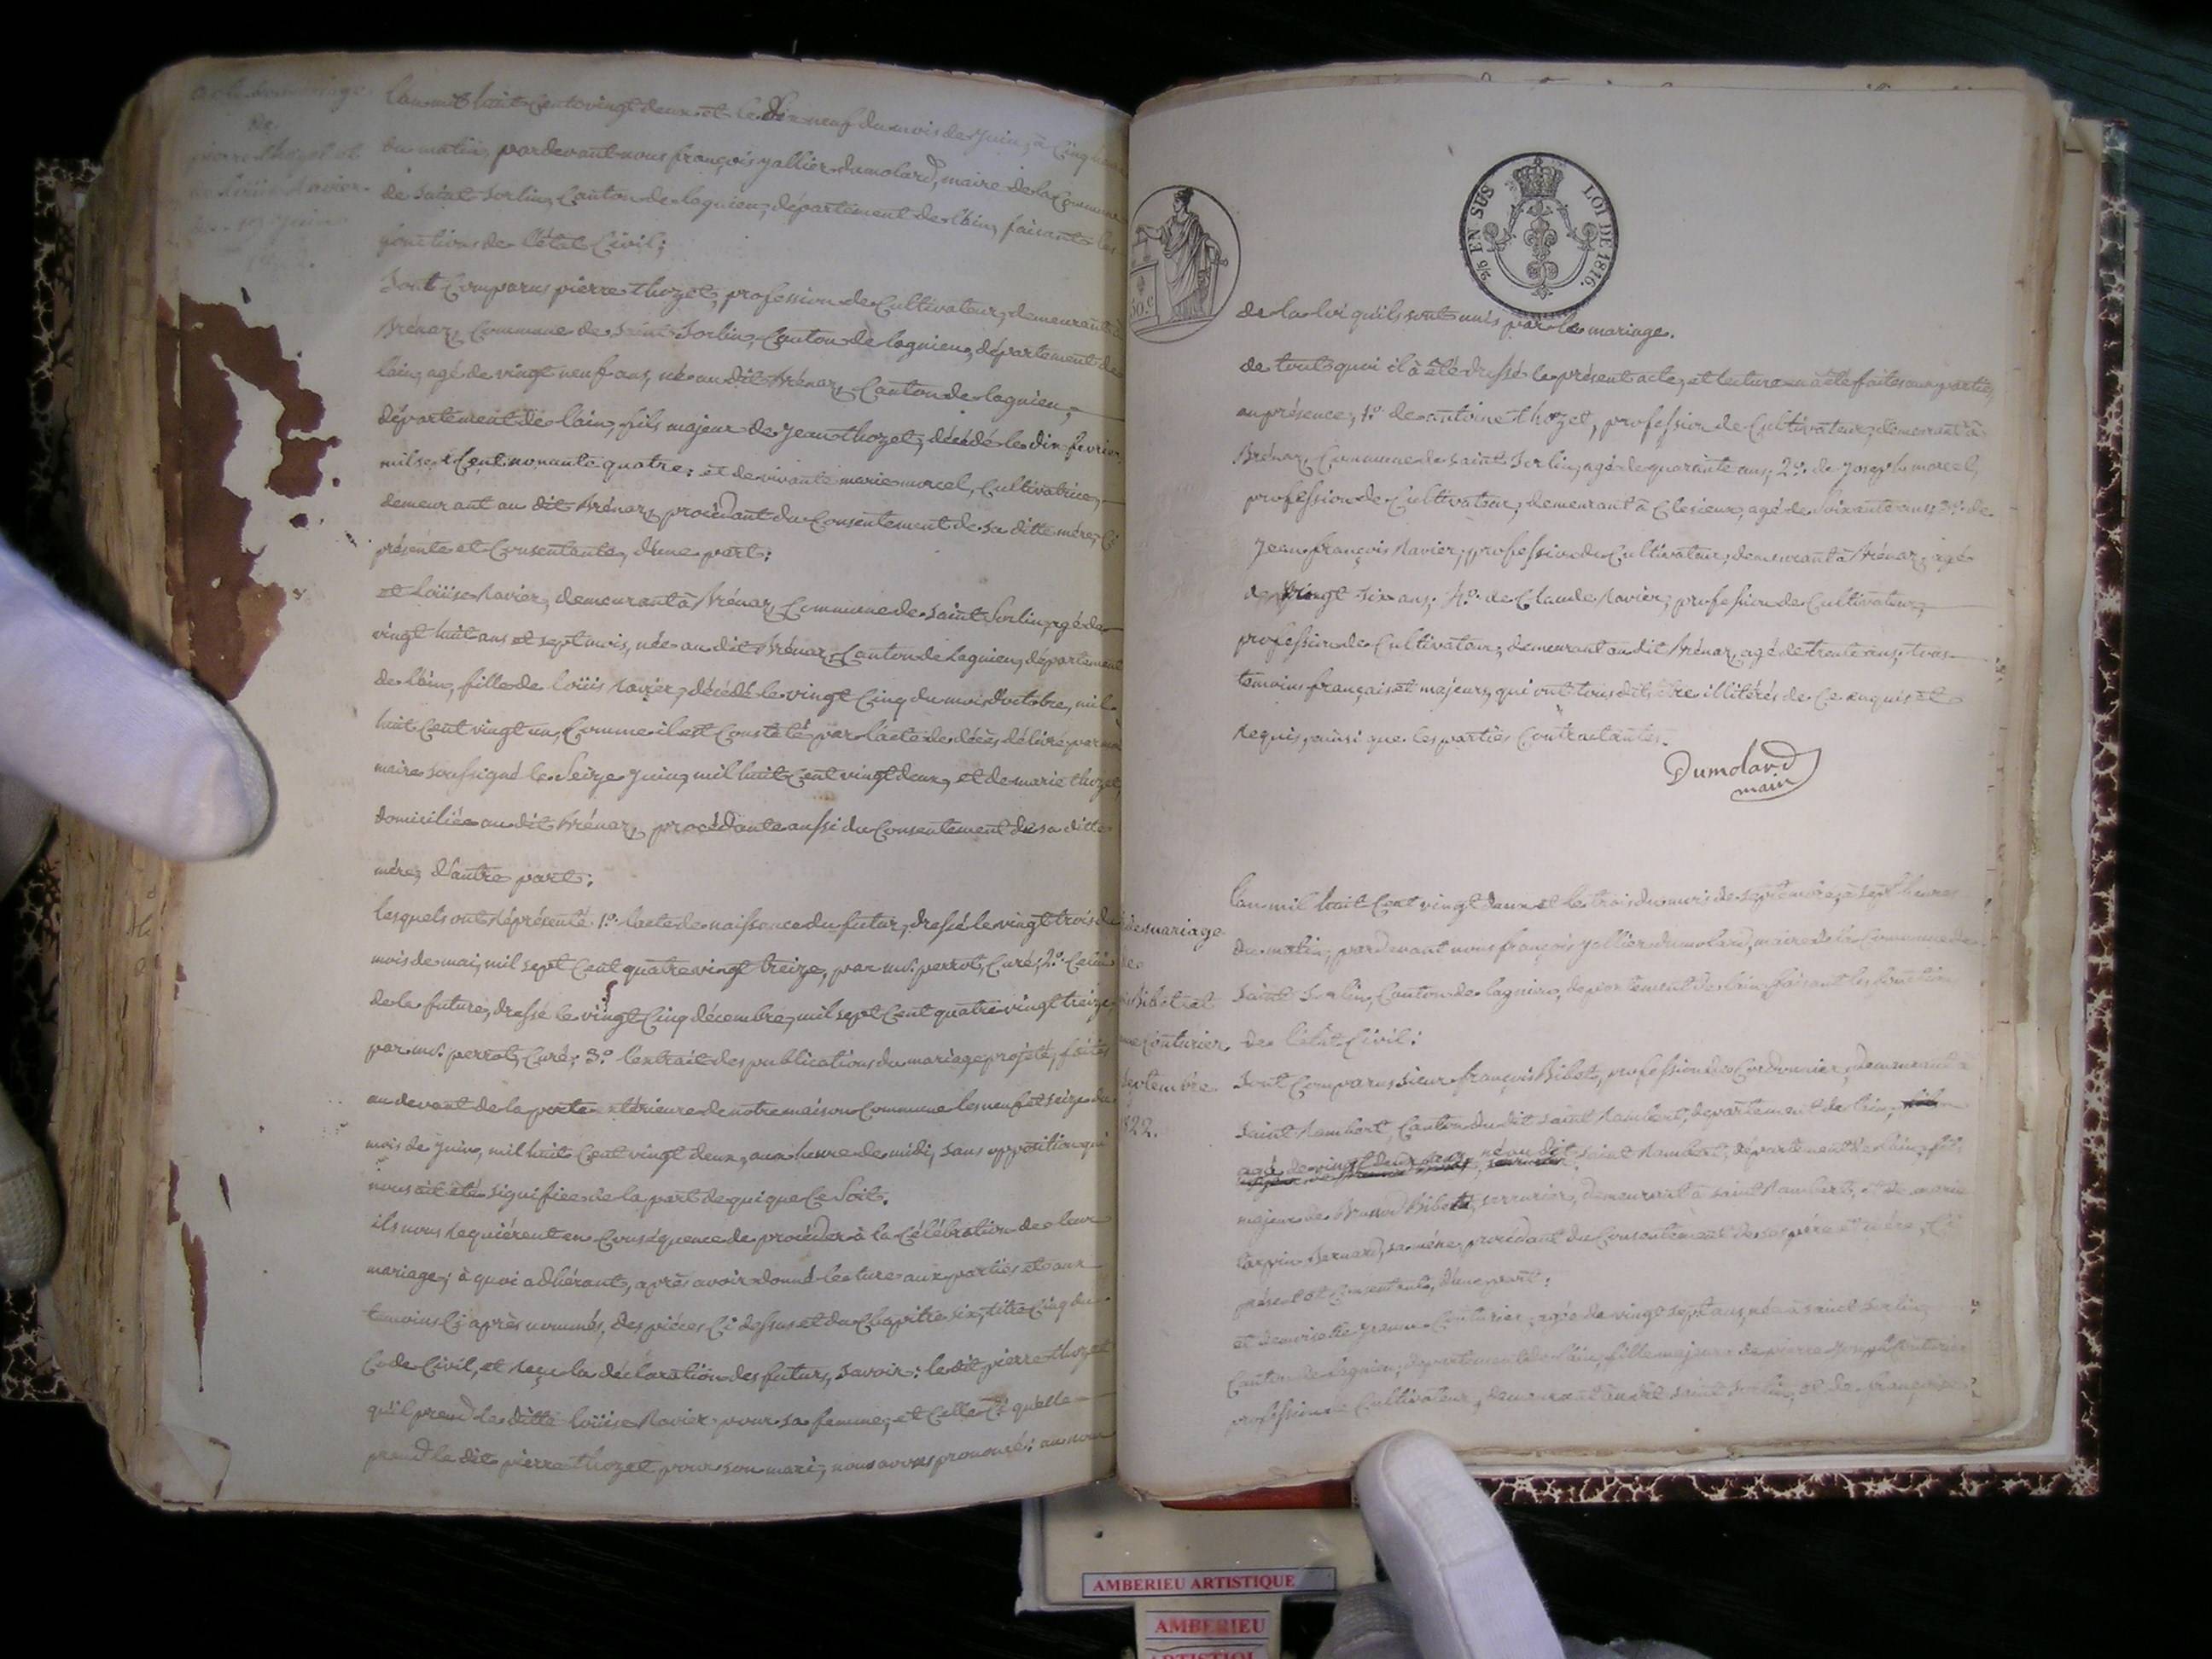 acte de mariage
de
pierre thozet et
de Loüise Ravier
du 19 juin
1822.
L'an mil huit Cent vingt deux et le dix neuf du mois de juin, à Cinq heures
du matin, pardevant nous françois yallier dumolard, maire de la Commune
de saint Sorlin, Canton de lagnieu, département de l'ain, faisant les
fonctions de l'état Civil;
Sont Comparus pierre thozet, profession de Cultivateur, demeurant à
Brénaz, Commune de saint Sorlin, Canton de lagnieu, département de
l'ain, agé de vingt neuf ans, né au dit Brénaz, Canton de lagnieu,
département de l'ain, fils majeur de jean thozet, décédé le dix fevrier
mil sept Cent nonante quatre; et de vivante marie morcel, Cultivatrice,
demeurant au dit Brénaz, procédant du Consentement de sa ditte mère, Ci
présente et Consentante, d'une part;
et Loüise Ravier, demeurant à Brénaz, Commune de saint Sorlin, agé de
vingt huit ans et sept mois, née au dit Brénaz, Canton de Lagnieu, département
de l'ain, fille de loüis Ravier, décédé le vingt Cinq du mois d'octobre, mil
huit Cent vingt un, Comme il est Constaté par l'acte de décès délivré par moi
maire soussigné le Seize juin, mil huit Cent vingt deux, et de marie thozet,
domiciliée au dit Brénaz, procédante aussi du Consentement de sa ditte
mère, d'autre part;
lesquels ont réprésenté 1.° l'acte de naissance du futur, dressé le vingt trois du
mois de mai, mil sept Cent quatre vingt treize, par mr. perrot, Curé; 2.° Celui
de la future, dressé le vingt Cinq décembre, mil sept Cent quatre vingt treize,
par mr. perrot, Curé; 3.° l'extrait des publications du mariage projeté, faites
au devant de la porte extérieure de notre maison Commune les neuf et seize du
mois de juin, mil huit Cent vingt deux, aux heure de midi, sans opposition qui
nous ait été signifiée de la part de qui que Ce Soit.
ils nous requièrent en Conséquence de procéder à la Célébration de leur
mariage; à quoi adhérant, après avoir donné lecture aux parties et aux
temoins Ci après nommés, des pièces Ci dessus et du Chapitre six, titre Cinq du
Code Civil, et reçu la déclaration des futurs, savoir: le dit pierre thozet
qu'il prend la ditte loüise Ravier pour sa femme; et Celle Ci qu'elle
prend le dit pierre thozet pour son mari; nous avons prononcé: au nom
5/6 EN SUS LOI DE 1816.
50.c
de la loi qu'ils sont unis par le mariage.
de tout quoi il à été dressé le présent acte, et lecture en à été faite aux parties,
en présence, 1.° de antoine thozet, profession de Cultivateur, demeurant à
Brénaz, Commune de saint Sorlin, agé de quarante ans; 2.° de joseph morcel,
profession de Cultivateur, demeurant à Clesieux, agé de soixante ans; 3.° de
jean françois Ravier, profession de Cultivateur, demeurant à Brénaz, agé
de vingt six ans; 4.° de Claude Ravier, profession de Cultivateur,
profession de Cultivateur, demeurant au dit Brénaz, agé de trente ans, tous
temoins français et majeurs, qui ont tous dit être illitérés de Ce enquis et
requis, ainsi que les parties Contractantes.
Dumolard
maire
de mariage
de
Bibet et
Couturier
septembre
1822.
L'an mil huit Cent vingt deux et le trois du mois de septembre, à sept heures
du matin, par devant nous françois yallier dumolard, maire de la Commune de
saint Sorlin, Canton de lagnieu, département de l'ain, faisant les fonctions
de l'état Civil;
Sont Comparus sieur françois Bibet, profession de Cordonnier, demeurant à
saint Rambert, Canton du dit saint Rambert, département de l'ain,
agé de vingt deux ans, né au dit saint Rambert, département de l'ain, fils
majeur de Bibet, serrurier, demeurant à saint Rambert, et de marie
Bernard, sa mère, procédant du Consentement de ses père et mère, Ci
présent et Consentants, d'une part;
et demoiselle jeanne Couturier, agée de vingt sept ans, née à saint Sorlin,
Canton de lagnieu, département de l'ain, fille majeure de pierre joseph Couturier
profession de Cultivateur, demeurant au dit saint Sorlin, et de françoise
AMBERIEU ARTISTIQUE
AMBERIEU